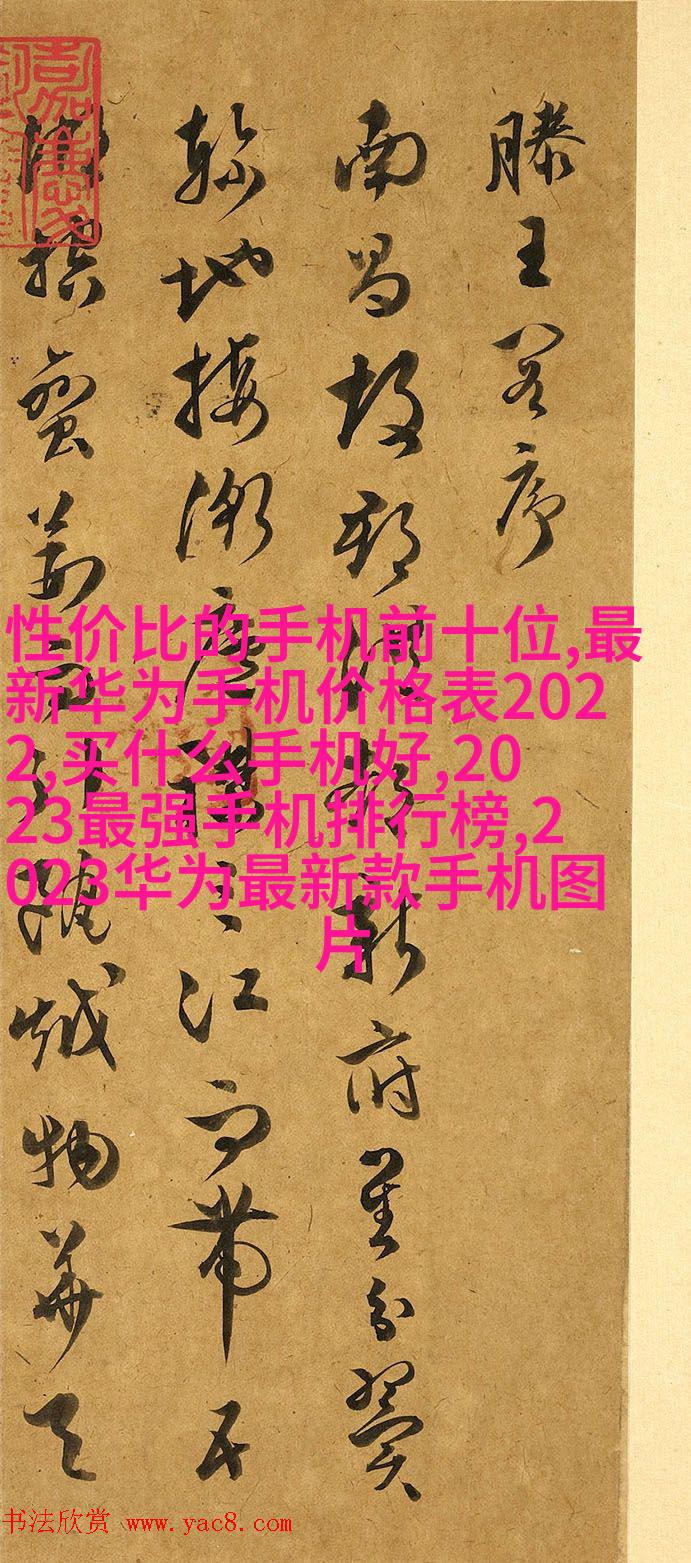 滕王閣序
南昌故郡洪都新府星分翼
軫地接衡廬襟三江而帶五
控蠻荊而引甌越物華天
性价比的手机前十位,最
新华为手机价格表202
2,买什么手机好,20
23最强手机排行榜,2
023华为最新款手机图
片
书法欣赏 www.yac8.com